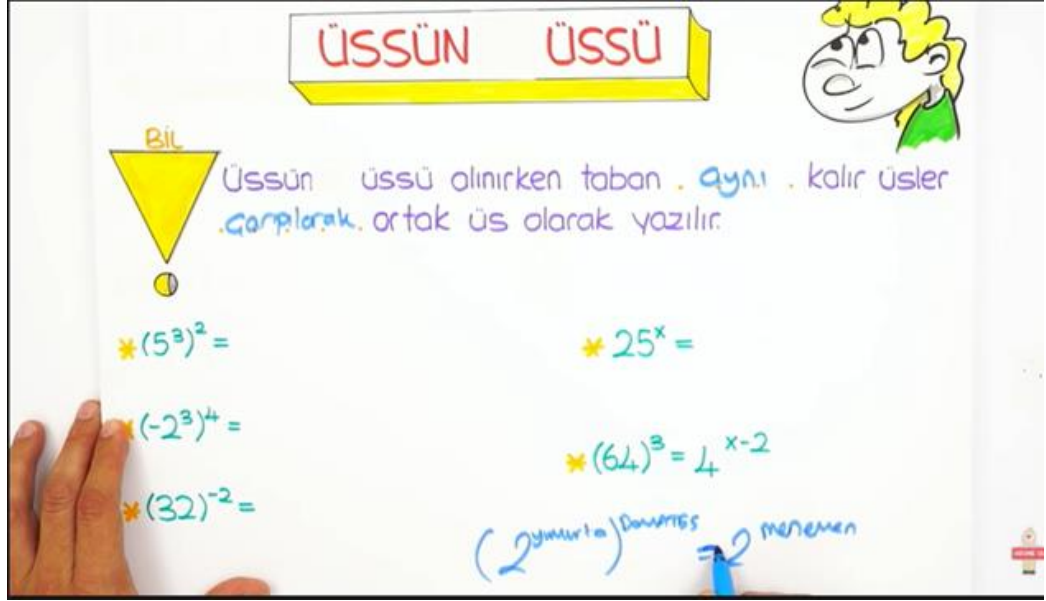 ÜSSÜN ÜSSÜ
BİL
Üssün üssü alınırken taban . aynı . kalır üsler
.çarpılarak. ortak üs olarak yazılır.
* (5³)² =
* 25ˣ =
* (-2³)⁴ =
* (64)³ = 4ˣ⁻²
* (32)⁻² =
(2^yumurta)^Domates = 2^menemen